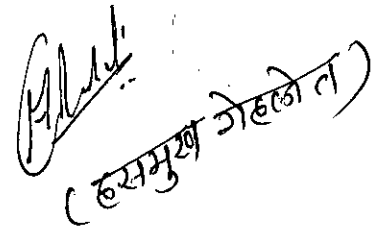 (हसमुख गेहलोत)